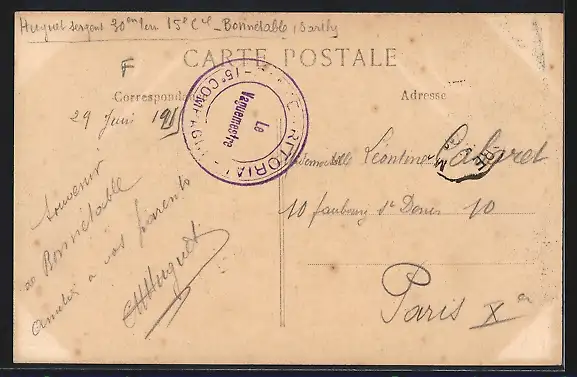 Huguet sergent 30em Terr 15e Cie - Bonnétable, Sarthe
CARTE POSTALE
F
Correspondance
Adresse
29 Juin 19
15e COMPAGNIE
TERRITORIAL
Le
Vaguemestre
Souvenir
de Bonnétable
Amitiés à vos parents
Huguet
Mademoiselle Léontine
10 faubourg St Denis 10
Paris Xe